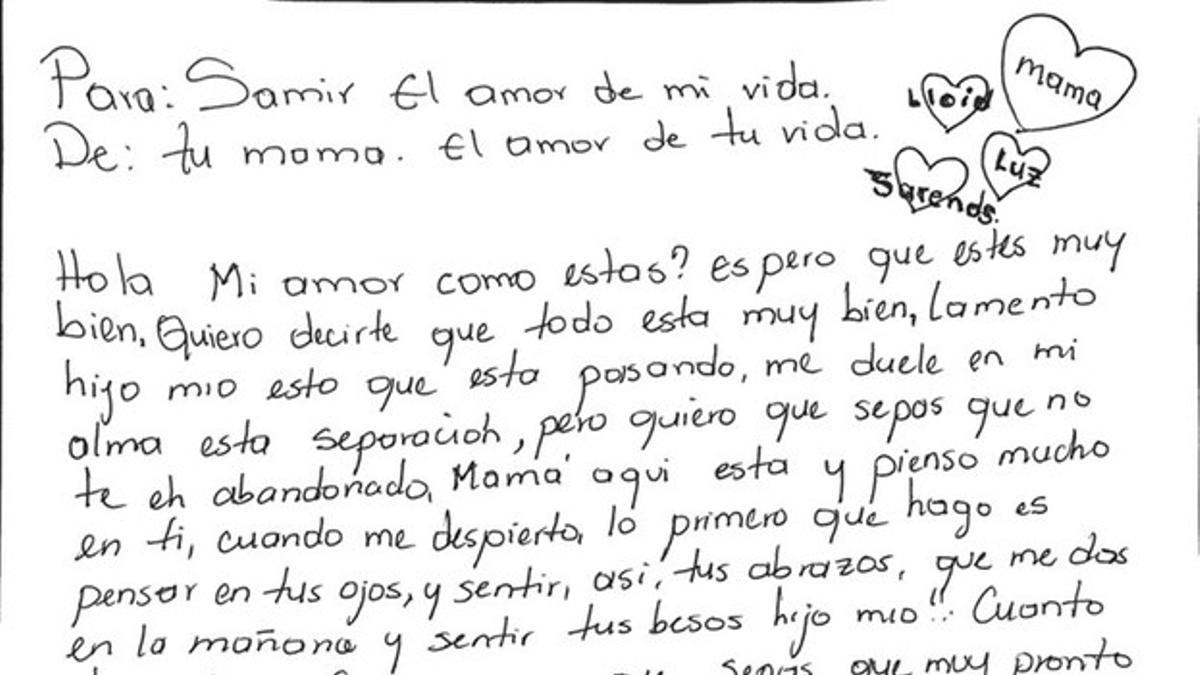 Para: Samir El amor de mi vida.
De: tu mama. El amor de tu vida.
mama
Lloid
Luz
Sarends.
Hola Mi amor como estas? espero que estes muy
bien, Quiero decirte que todo esta muy bien, lamento
hijo mio esto que esta pasando, me duele en mi
alma esta separacion, pero quiero que sepas que no
te eh abandonado, Mamá aqui esta y pienso mucho
en ti, cuando me despierto, lo primero que hago es
pensar en tus ojos, y sentir, asi, tus abrazos, que me das
en la mañana y sentir tus besos hijo mio!! Cuanto
sepas que muy pronto